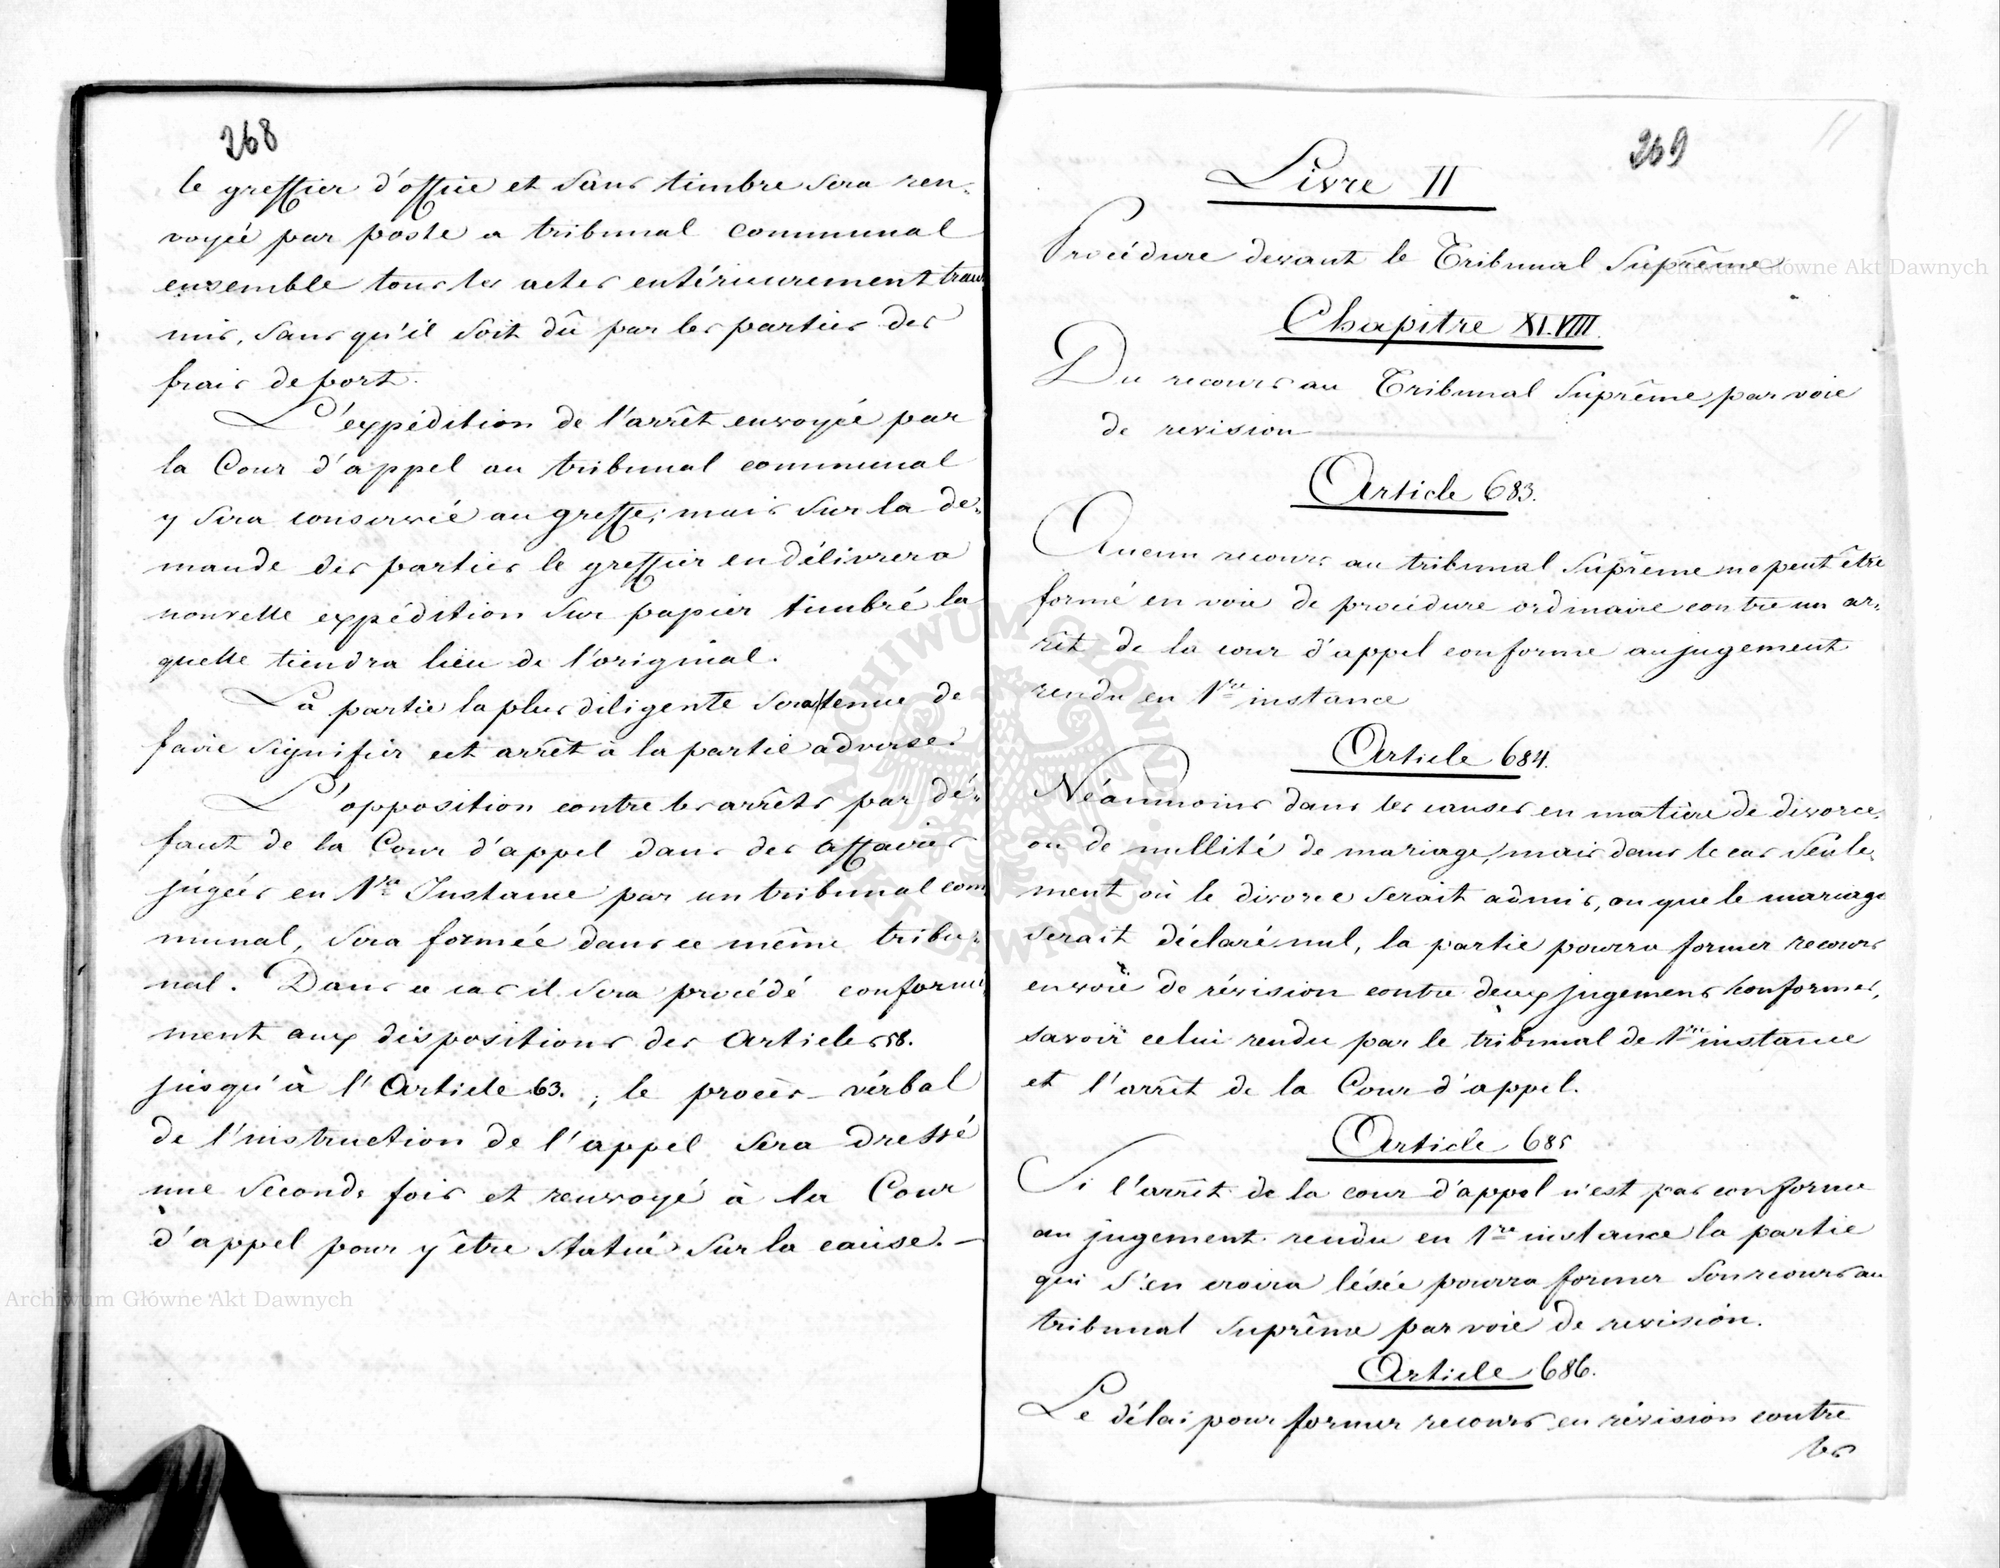 268
le greffier d'office et sans timbre sera ren-
voyée par poste a tribunal communal
ensemble tous les actes entérieurement trans
mis, sans qu'il soit dû par les parties des
frais de port.
L'expédition de l'arrêt envoyée par
la Cour d'appel au tribunal communal
y sera conservée au greffe; mais sur la de-
mande des parties le greffier en délivrera
nouvelle expédition sur papier timbré la
quelle tiendra lieu de l'original.
La partie la plus diligente sera tenue de
faire signifier cet arrêt à la partie adverse.
L'opposition contre les arrêts par dé-
faut de la Cour d'appel dans des affaires
jugées en 1re Instance par un tribunal com
munal, sera formée dans ce même tribu-
nal. Dans ce cas il sera procédé conformé
ment aux dispositions des Articles 58.
jusqu'à l'Article 63.; le procès-vérbal
de l'instruction de l'appel sera dressé
une seconde fois et renvoyé à la Cour
d'appel pour y être statué sur la cause. —
269
Livre II
Procédure devant le Tribunal Suprême
Chapitre XLVIII.
Du recours au Tribunal Suprême par voie
de revision
Article 683.
Aucun recours au tribunal Suprême ne peut être
formé en voie de procédure ordinaire contre un ar-
rêt de la cour d'appel conforme au jugement
rendu en 1re instance
Article 684.
Néanmoins dans les causes en matière de divorce,
ou de nullité de mariage, mais dans le cas seule-
ment où le divorce serait admis, ou que le mariage
serait déclaré nul, la partie pourra former recours
en voie de révision contre deux jugemens conformes,
savoir celui rendu par le tribunal de 1re instance
et l'arrêt de la Cour d'appel.
Article 685
Si l'arrêt de la cour d'appel n'est pas conforme
au jugement rendu en 1re instance la partie
qui s'en croira lésée pourra former son recours au
tribunal Suprême par voie de revision.
Article 686.
Le délai pour former recours en révision contre
les
Archiwum Główne Akt Dawnych
Archiwum Główne Akt Dawnych
ARCHIWUM GŁÓWNE AKT DAWNYCH